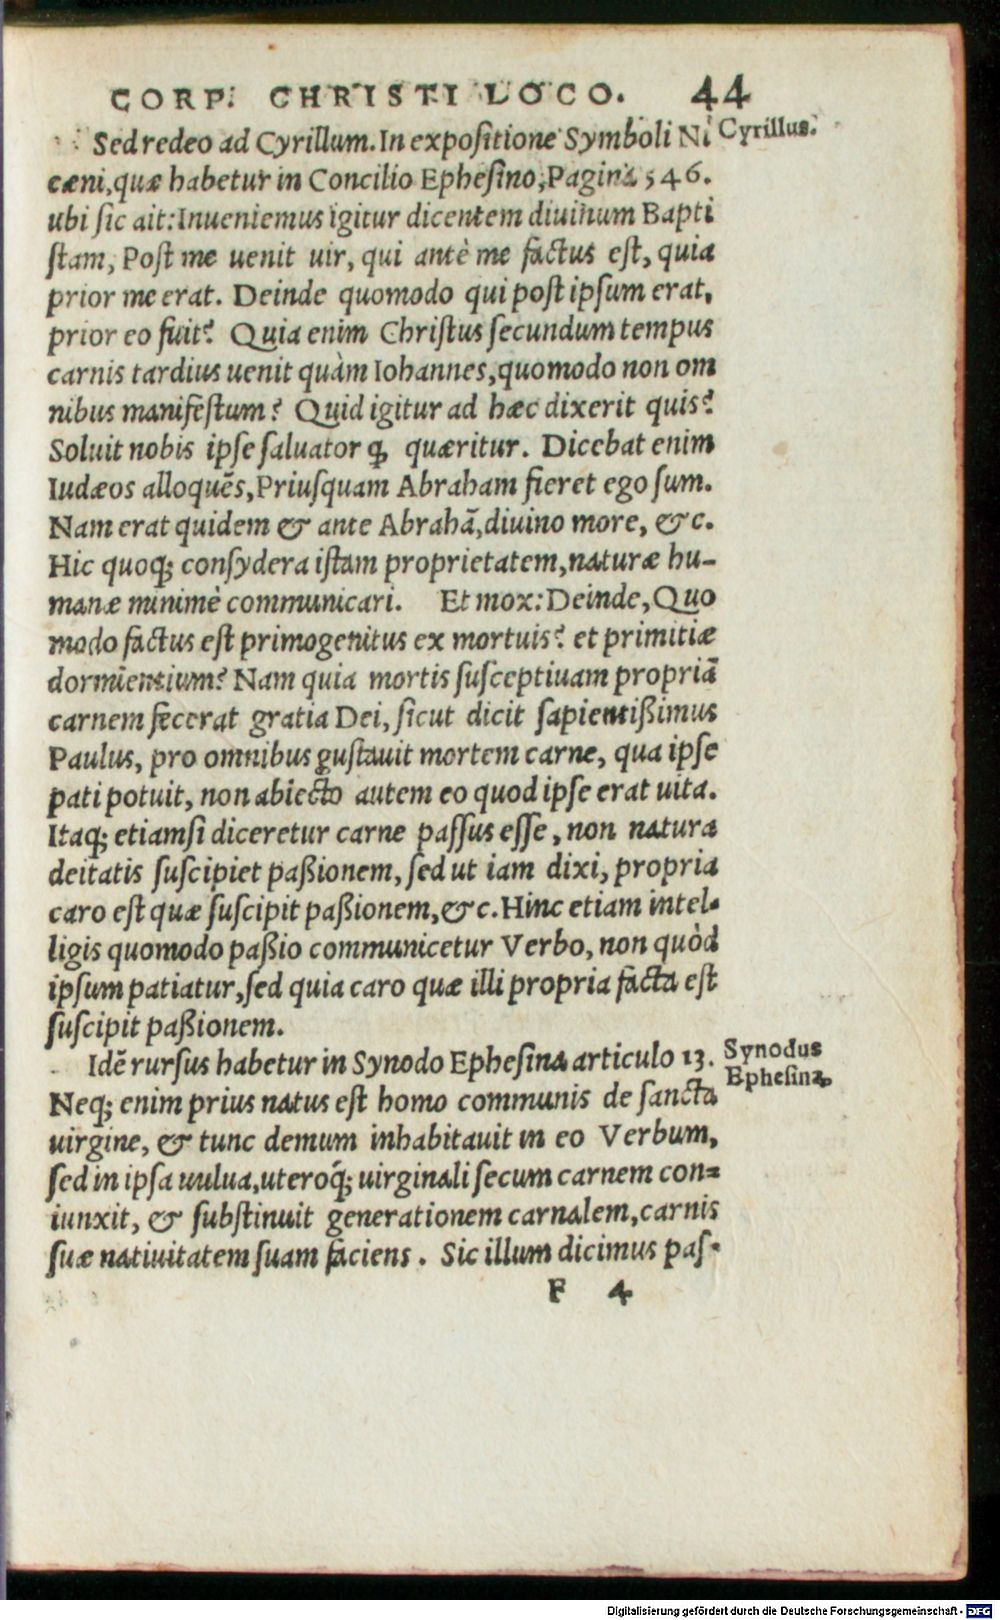 CORP. CHRISTI LOCO. 44
Sed redeo ad Cyrillum. In expoſitione Symboli Ni
Cyrillus.
cæni, quæ habetur in Concilio Epheſino, Pagina 546.
ubi ſic ait: Inueniemus igitur dicentem diuinum Bapti
ſtam, Poſt me uenit uir, qui antè me factus eſt, quia
prior me erat. Deinde quomodo qui poſt ipſum erat,
prior eo fuit? Quia enim Chriſtus ſecundum tempus
carnis tardius uenit quàm Iohannes, quomodo non om
nibus manifeſtum? Quid igitur ad hæc dixerit quis?
Soluit nobis ipſe ſaluator ꝙ quæritur. Dicebat enim
Iudæos alloquẽs, Priuſquam Abraham fieret ego ſum.
Nam erat quidem & ante Abrahã, diuino more, &c.
Hic quoq; conſydera iſtam proprietatem, naturæ hu-
manæ minimè communicari. Et mox: Deinde, Quo
modo factus eſt primogenitus ex mortuis? et primitiæ
dormientium? Nam quia mortis ſuſceptiuam propriã
carnem fecerat gratia Dei, ſicut dicit ſapientißimus
Paulus, pro omnibus guſtauit mortem carne, qua ipſe
pati potuit, non abiecto autem eo quod ipſe erat uita.
Itaq; etiamſi diceretur carne paſſus eſſe, non natura
deitatis ſuſcipiet paßionem, ſed ut iam dixi, propria
caro eſt quæ ſuſcipit paßionem, &c. Hinc etiam intel-
ligis quomodo paßio communicetur Verbo, non quòd
ipſum patiatur, ſed quia caro quæ illi propria facta eſt
ſuſcipit paßionem.
Idẽ rurſus habetur in Synodo Epheſina articulo 13.
Synodus
Epheſina.
Neq; enim prius natus eſt homo communis de ſancta
uirgine, & tunc demum inhabitauit in eo Verbum,
ſed in ipſa uulua, uteroq́; uirginali ſecum carnem con=
iunxit, & ſubſtinuit generationem carnalem, carnis
ſuæ natiuitatem ſuam faciens. Sic illum dicimus paſ-
F 4
Digitalisierung gefördert durch die Deutsche Forschungsgemeinschaft - DFG